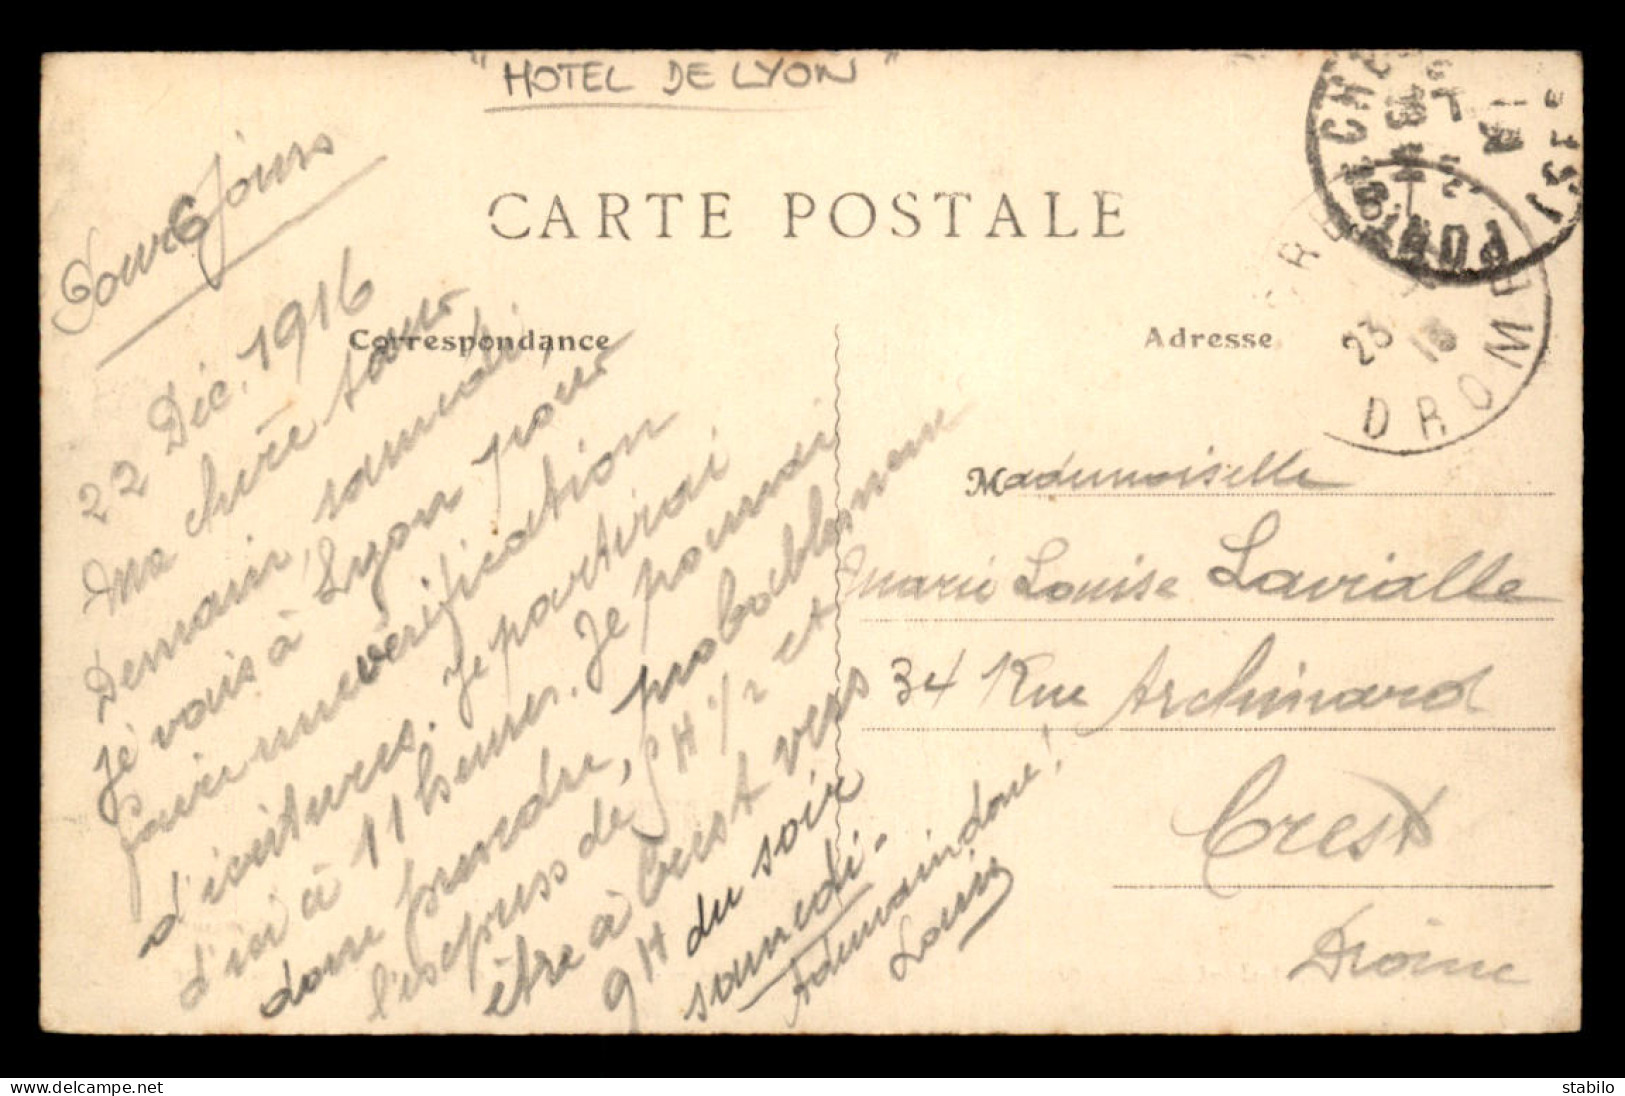 "HOTEL DE LYON"
CARTE POSTALE
Correspondance
Adresse
6 jours
22 Déc. 1916
Ma chère sœur
Demain, samedi,
je vais à Lyon pour
faire une vérification
d'écritures. Je partirai
d'ici à 11 heures. Je pourrai
donc prendre, probablement
l'express de 5H 1/2 et
être à Crest vers
9H du soir
samedi.
A demain donc!
Louis
Mademoiselle
Marie Louise Lavialle
34 Rue Archinard
Crest
Drome
23
DROME
delcampe.net
stabilo